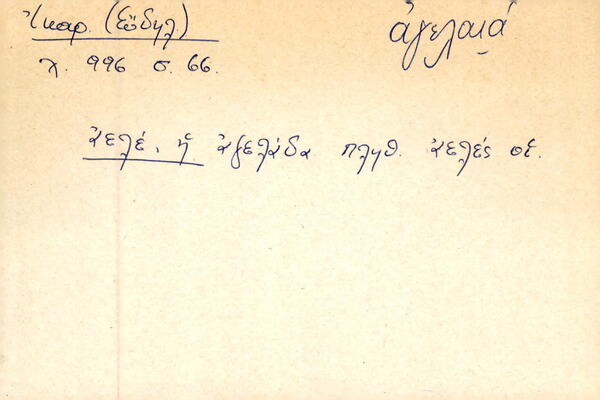 Ἰκαρ. (Εὔδηλ)
ἀγελαιά
χ. 996 σ. 66.
ἀελέ, ἡ ἀγελάδα πληθ. ἀελές οἱ.